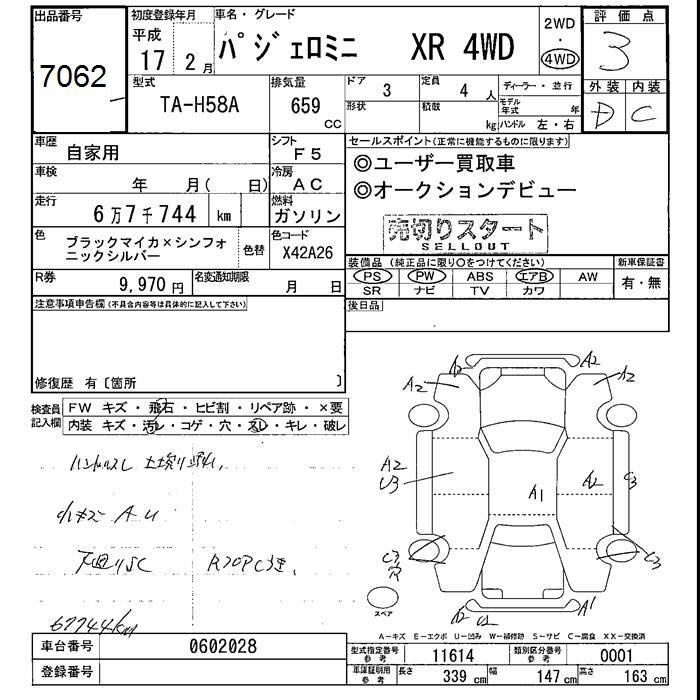 出品番号 初度登録年月 車名・グレード 2WD 評価点
7062 平成 17 2月 パジェロミニ XR 4WD ・ 3
4WD
型式 排気量 ドア 3 定員 4 人 ディーラー・並行 外装 内装
TA-H58A 659 cc 形状 積載 kg モデル年式 年 D C
ハンドル 左・右
車歴 自家用 シフト F5 セールスポイント(正常に機能するものに限ります)
車検 年 月( 日) 冷房 AC ◎ユーザー買取車
走行 6万7千744 km 燃料 ガソリン ◎オークションデビュー
色 ブラックマイカ×シンフォニックシルバー 色替 色コード X42A26 売切りスタート
SELLOUT
R券 9,970円 名変通知期限 月 日 装備品(純正品に限り○をつけてください) 新車保証書
PS PW ABS エアB AW 有・無
SR ナビ TV カワ
注意事項申告欄(不具合内容等は具体的に記入して下さい) 後日品
修復歴 有〔箇所 〕
検査員記入欄 FW キズ・飛石・ヒビ割・リペア跡・×要
内装 キズ・汚レ・コゲ・穴・スレ・キレ・破レ
A2 A2
A2 A2
ハンドルスレ
A2 U3 A1 A2 C3
小キズ AU
下回りSC
C3 C3
67744km
スペア
A2 A1
A−キズ E−エクボ U−凹み W−補修跡 S−サビ C−腐食 XX−交換済
車台番号 0602028 型式指定番号 参考 11614 類別区分番号 参考 0001
登録番号 車庫証明用 参考 長さ 339 cm 幅 147 cm 高さ 163 cm